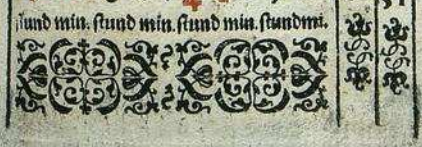 stund min. stund min. stund min. stundmi.